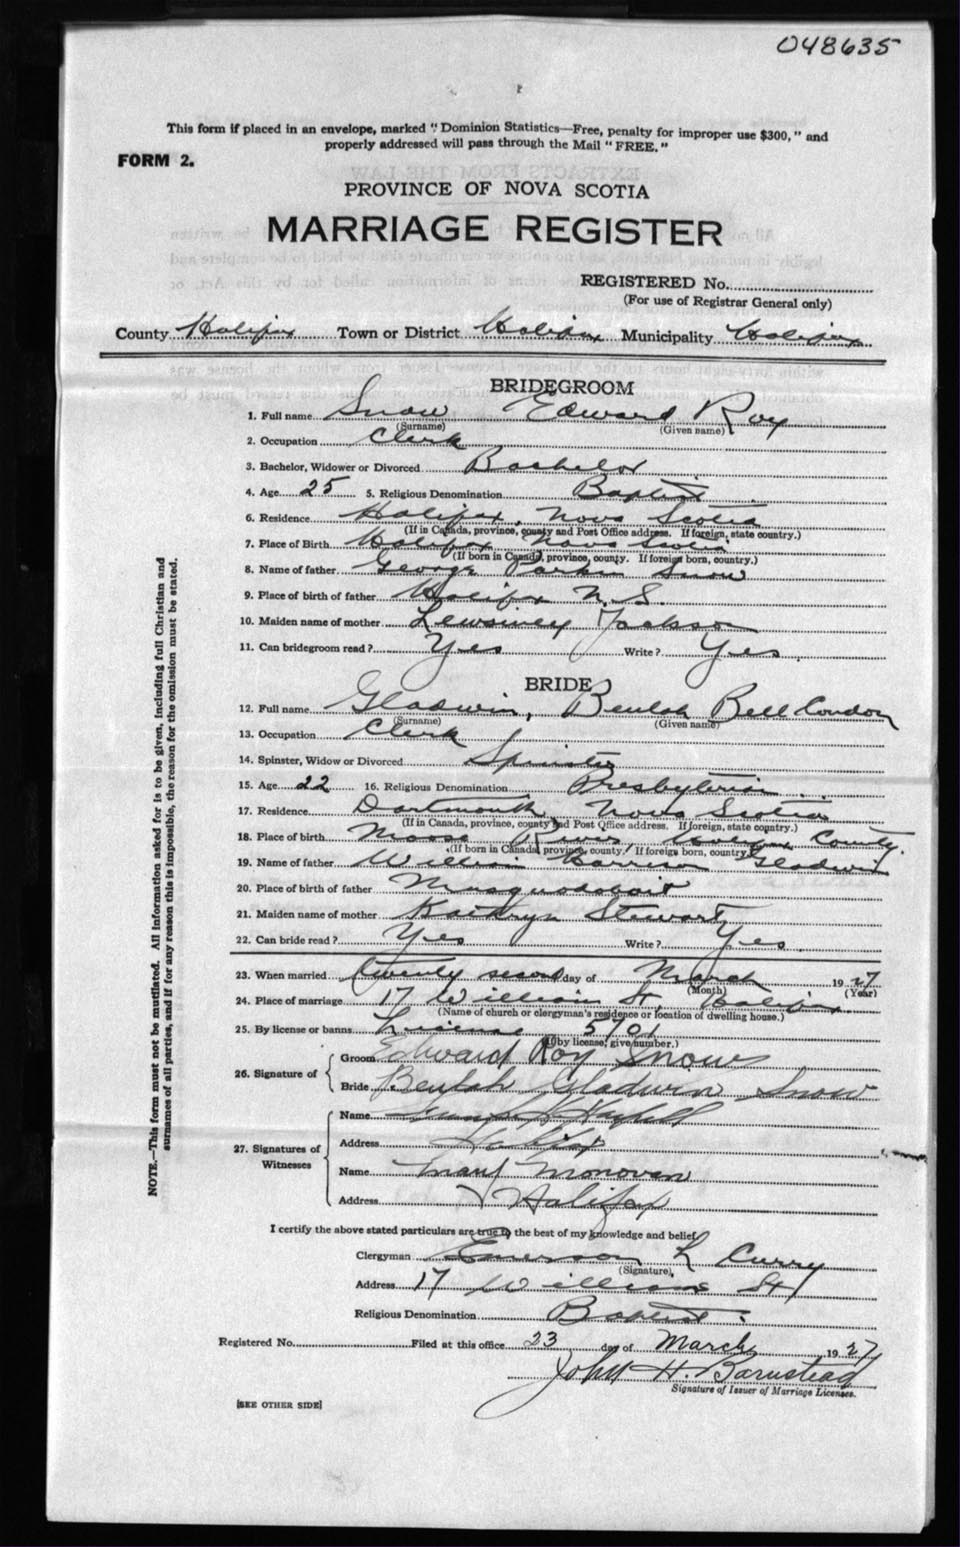 048635
This form if placed in an envelope, marked "Dominion Statistics—Free, penalty for improper use $300," and
properly addressed will pass through the Mail "FREE."
FORM 2.
PROVINCE OF NOVA SCOTIA
MARRIAGE REGISTER
REGISTERED No.
(For use of Registrar General only)
County Halifax Town or District Halifax Municipality Halifax
BRIDEGROOM
1. Full name Snow Edward Roy
(Surname) (Given name)
2. Occupation Clerk
3. Bachelor, Widower or Divorced Bachelor
4. Age 25 5. Religious Denomination Baptist
6. Residence Halifax, Nova Scotia
(If in Canada, province, county and Post Office address. If foreign, state country.)
7. Place of Birth Halifax Nova Scotia
(If born in Canada, province, county. If foreign born, country.)
8. Name of father George Parker Snow
9. Place of birth of father Halifax N. S.
10. Maiden name of mother Jackson
11. Can bridegroom read? Yes Write? Yes
BRIDE
12. Full name Gladwin, Beulah Bell Condon
(Surname) (Given name)
13. Occupation Clerk
14. Spinster, Widow or Divorced Spinster
15. Age 22 16. Religious Denomination Presbyterian
17. Residence Dartmouth, Nova Scotia
(If in Canada, province, county and Post Office address. If foreign, state country.)
18. Place of birth Moose River Halifax County.
(If born in Canada, province, county. If foreign born, country.)
19. Name of father William Harrison Gladwin
20. Place of birth of father Musquodoboit
21. Maiden name of mother Kathryn Stewart
22. Can bride read? Yes Write? Yes
23. When married twenty second day of March 1927
(Month) (Year)
24. Place of marriage 17 William St Halifax
(Name of church or clergyman's residence or location of dwelling house.)
25. By license or banns License 5701
(If by license, give number.)
26. Signature of
Groom Edward Roy Snow
Bride Beulah Gladwin Snow
27. Signatures of
Witnesses
Name
Address Halifax
Name Monovan
Address Halifax
I certify the above stated particulars are true to the best of my knowledge and belief.
Clergyman Emerson L Curry
(Signature)
Address 17 William St
Religious Denomination Baptist
Registered No. Filed at this office 23 day of March 1927
John H. Barnstead
Signature of Issuer of Marriage Licenses.
[SEE OTHER SIDE]
NOTE.—This form must not be mutilated. All information asked for is to be given, including full Christian and
surnames of all parties, and if for any reason this is impossible, the reason for the omission must be stated.